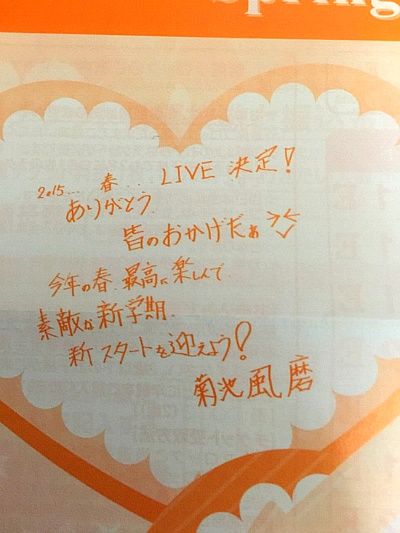 Spring
2015... 春... LIVE 決定!
ありがとう.
皆のおかげだぁ
今年の春、最高に楽しんで、
素敵な新学期、
新スタートを迎えよう!
菊池風磨